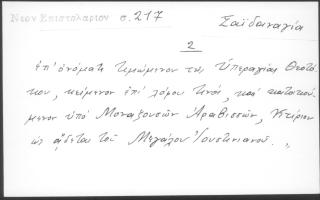 Νεον Επιστολαριον σ. 217
Σαϊδαναγία
2
ἐπ' ὀνόματι τιμώμενον τῆς Ὑπεραγίας Θεοτό-
κου, κείμενον ἐπί λόφου τινός, καί κατοικού-
μενον ὑπό Μοναζουσῶν Ἀραβισσῶν, Κτίριον
ὡς ᾄδεται τοῦ Μεγάλου Ἰουστινιανοῦ. „